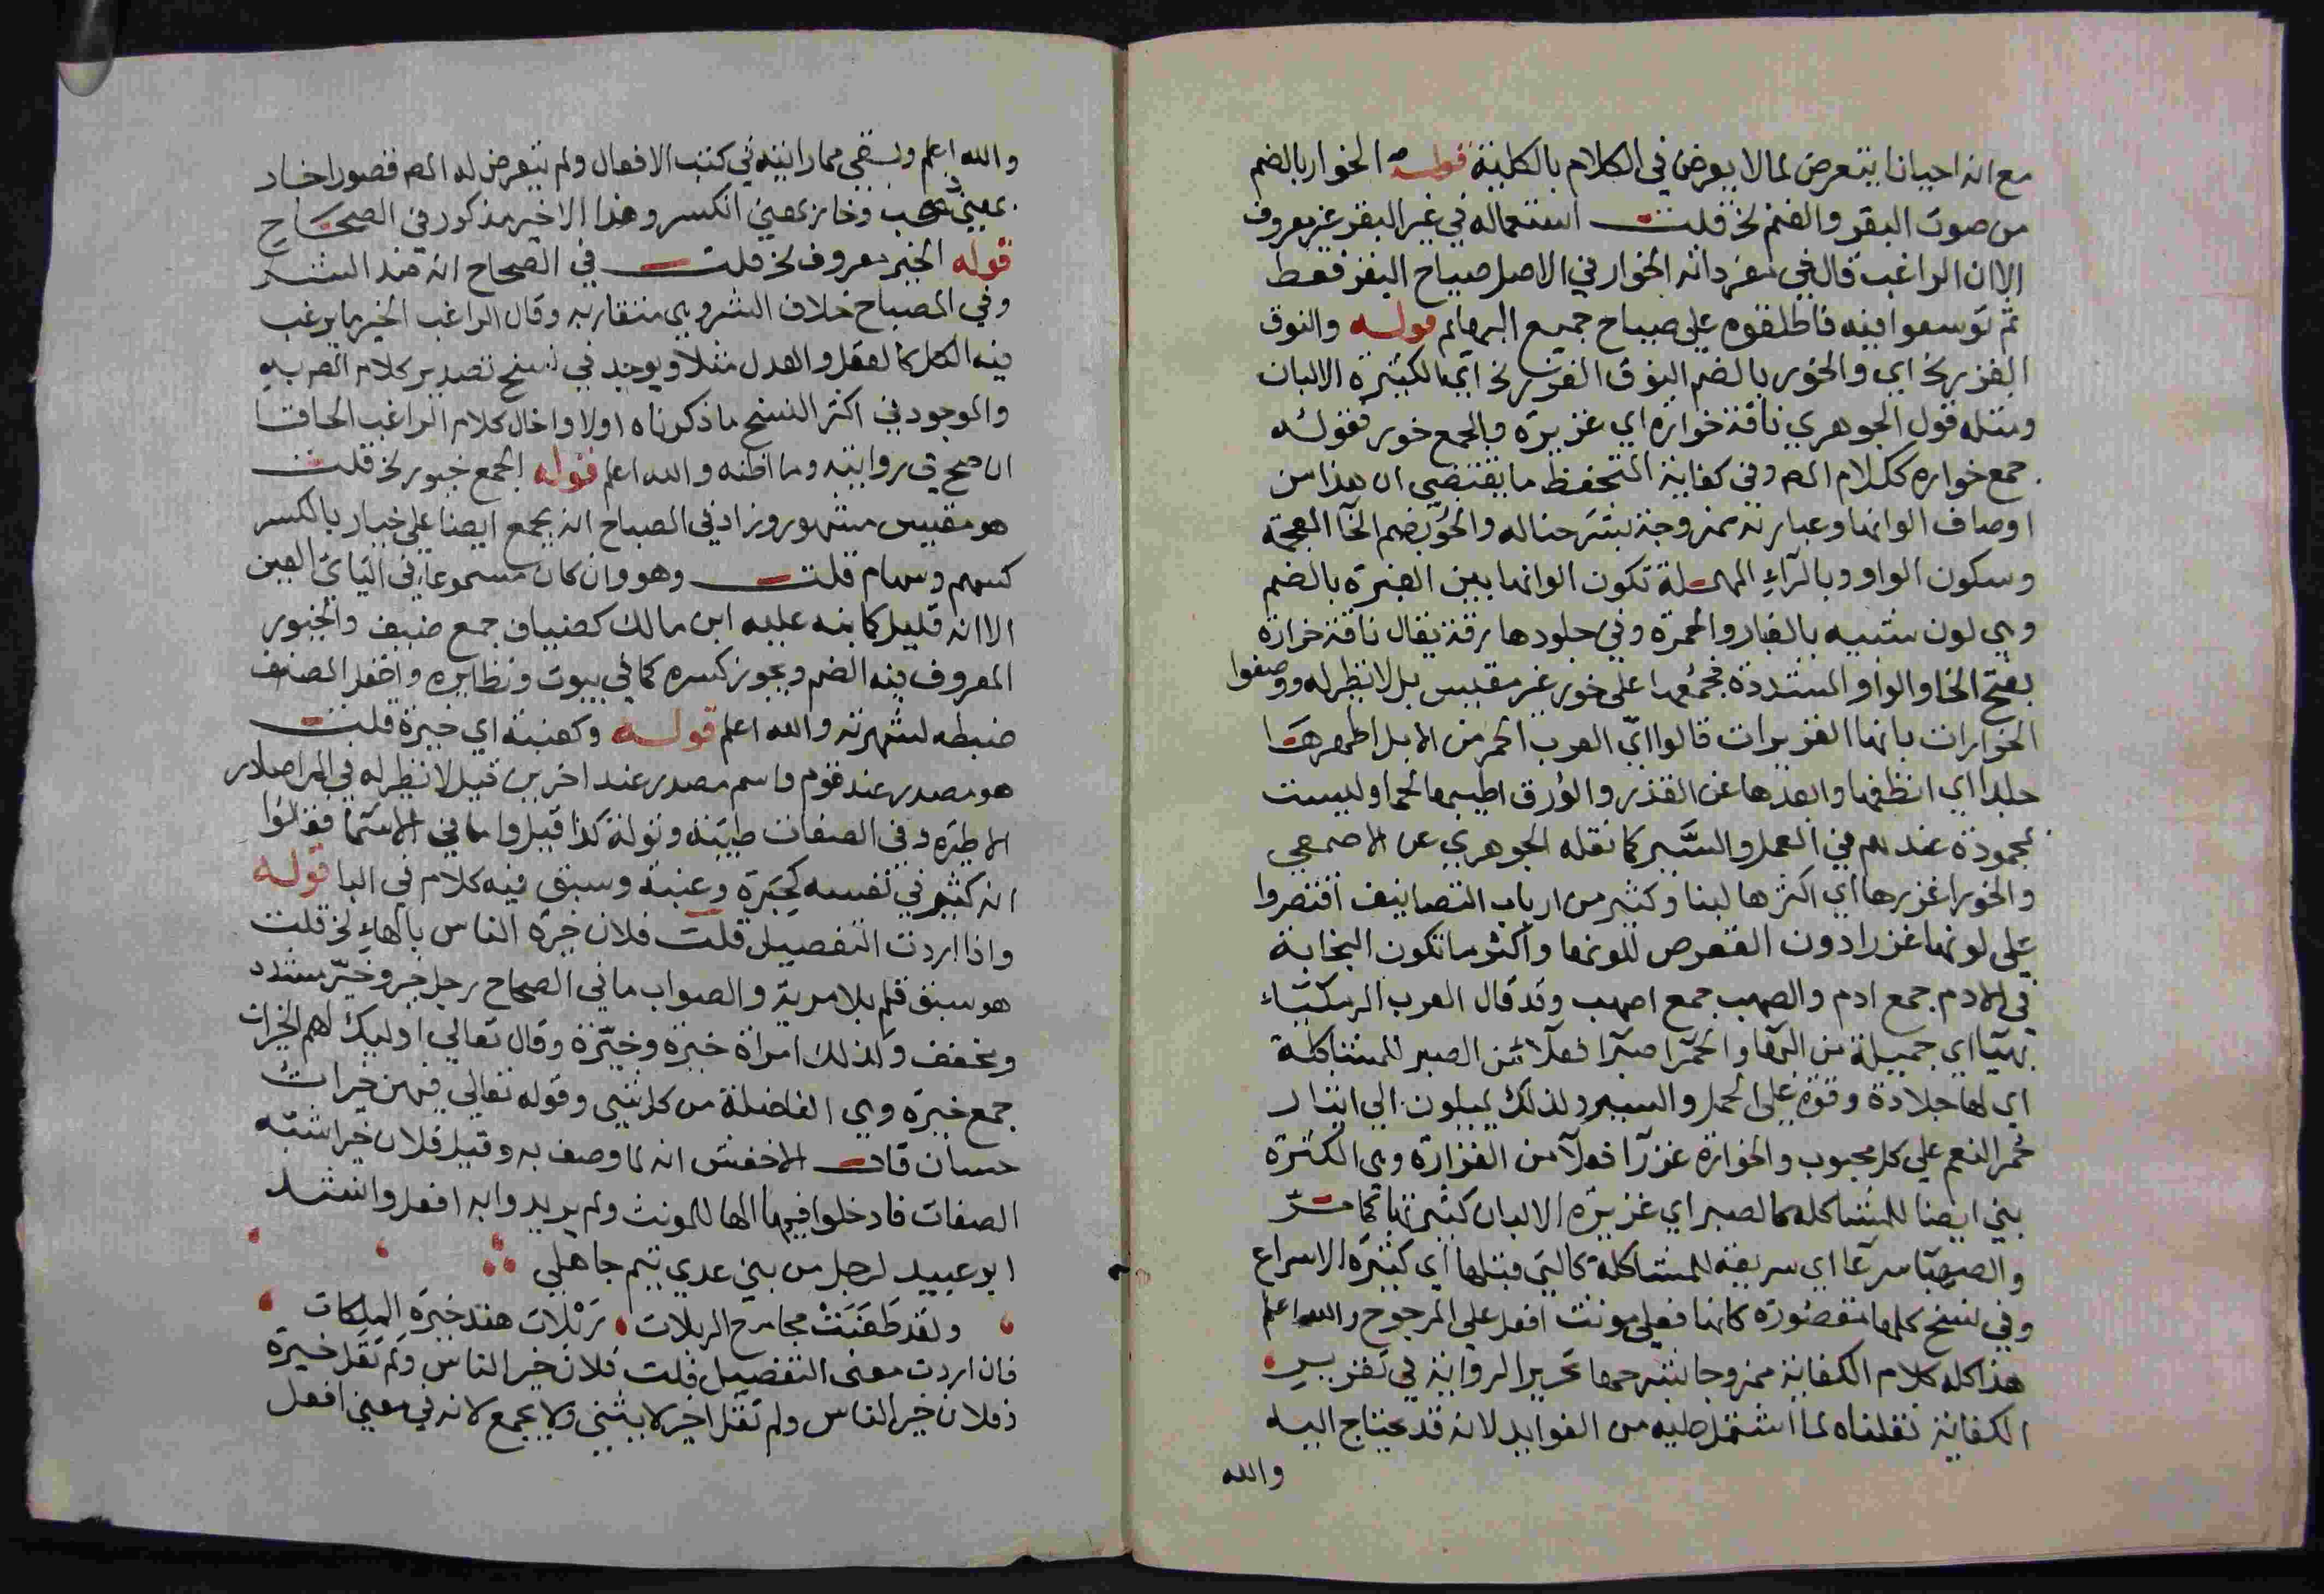 مع انه احيانا يتعرض لما لا يعرض في الكلام بالكلية قوله الخوار بالضم
من صوت البقر والغنم الخ قلت استعماله في غير البقر غير معروف
الا ان الراغب قال في مفرداته الخوار في الاصل صياح البقر فقط
ثم توسعوا فيه فاطلقوه على صياح جميع البهائم قوله والنوق
الغزر الخ اي والخور بالضم النوق الغزر الخ اي الكثيرة الالبان
ومثله قول الجوهري ناقة خوارة اي غزيرة والجمع خور فقوله
جمع خواره ككلام المص وفي كفاية المتحفظ ما يقتضي ان هذا من
اوصاف الوانها وعبارته ممزوجة بشرحنا له والخور بضم الخآ المعجمة
وسكون الواو وبالرآء المهملة تكون الوانها بين الغبرة بالضم
وهي لون شبيه بالغبار والحمرة وفي جلودها رقة يقال ناقة خوارة
بفتح الخا والواو المشددة فجمعها على خور غير مقيس بل لا نظير له ووصفوا
الخوارات بانها الغزيرات قالوا اي العرب الحمر من الابل اطهرها
جلدا اي انظفها وابعدها عن القذر والورق اطيبها لحما وليست
بمحمودة عندهم في العمل والسير كما نقله الجوهري عن الاصمعي
والخور اغزرها اي اكثرها لبنا وكثير من ارباب التصانيف اقتصروا
على لونها غزرا دون التعرض للونها واكثر ما تكون النجابة
في الادم جمع ادم والصهب جمع اصهب وقد قال العرب الرمكاء
بهيا اي جميلة من البهآ والحمرا صبرا فعلآ من الصبر للمشاكلة
اي لها جلادة وقوة على الحمل والسير ولذلك يميلون الي ايثار
حمر النعم علي كل محبوب والخوارة غزرآ فعلآ من الغزارة وهي الكثرة
بني ايضا للمشاكله كالصبر اي غزيرة الالبان كثيرتها كما مر
والصهبا سرعا اي سريعة للمشاكلة كالتي قبلها اي كثيرة الاسراع
وفي نسخ كلها مقصورة كانها فعلى مونث افعل علي المرجوح والله اعلم
هذا كله كلام الكفاية ممزوجا بشرحها تحرير الرواية في تقرير
الكفاية نقلناه لما اشتمل عليه من الفوايد لانه قد يحتاج اليه
والله
والله اعلم وبقي مما رايته في كتب الافعال ولم يتعرض له المص قصورا خار
بمعني ذهب وخار بمعني انكسر وهذا الاخير مذكور في الصحاح
قوله الخير معروف الخ قلت في الصحاح انه ضد الشر
وفي المصباح خلاف الشر وهي متقاربه وقال الراغب الخير ما يرغب
فيه الكل كالعقل والعدل مثلا ويوجد في نسخ تصدير كلام المص به
والموجود في اكثر النسخ ما ذكرناه اولا واخال كلام الراغب الحاقا
ان صح في روايته وما اظنه والله اعلم قوله الجمع خيور الخ قلت
هو مقيس مشهور وزاد في المصباح انه يجمع ايضا على خيار بالكسر
كسهم وسهام قلت وهو وان كان مسموعا في اليائي العين
الا انه قليل كما نبه عليه ابن مالك كضياف جمع ضيف والخيور
المعروف فيه الضم ويجوز كسره كما في بيوت ونظايره واغفل المصنف
ضبطه لشهرته والله اعلم قوله وكعنبة اي خيرة قلت
هو مصدر عند قوم واسم مصدر عند اخرين قيل لا نظير له في المصادر
الا طيره وفي الصفات طيبة وتولة كذا قيل واما في الاسما فقالوا
انه كثير في نفسه كحبرة وعنبة وسبق فيه كلام في البا قوله
واذا اردت التفصيل قلت فلان خيرة الناس بالهاء الخ قلت
هو سبق قلم بلا مرية والصواب ما في الصحاح رجل خير وخير مشدد
ومخفف وكذلك امراة خيرة وخيرة وقال تعالي اوليك لهم الخيرات
جمع خيره وهي الفاضلة من كل شي وقوله تعالي فيهن خيرات
حسان قال الاخفش انه لما وصف به وقيل فلان خير اشبه
الصفات فادخلوا فيها الها للمونث ولم يريدوا به افعل وانشد
ابو عبيد لرجل من بني عدي تيم جاهلي
ولقد طعنت مجامح الربلات ربلات هند خيرة الملكات
فان اردت معنى التفضيل قلت فلان خير الناس ولم تقل خيرة
فلان خير الناس ولم تقل اخير لا يثني ولا يجمع لانه في معني افعل